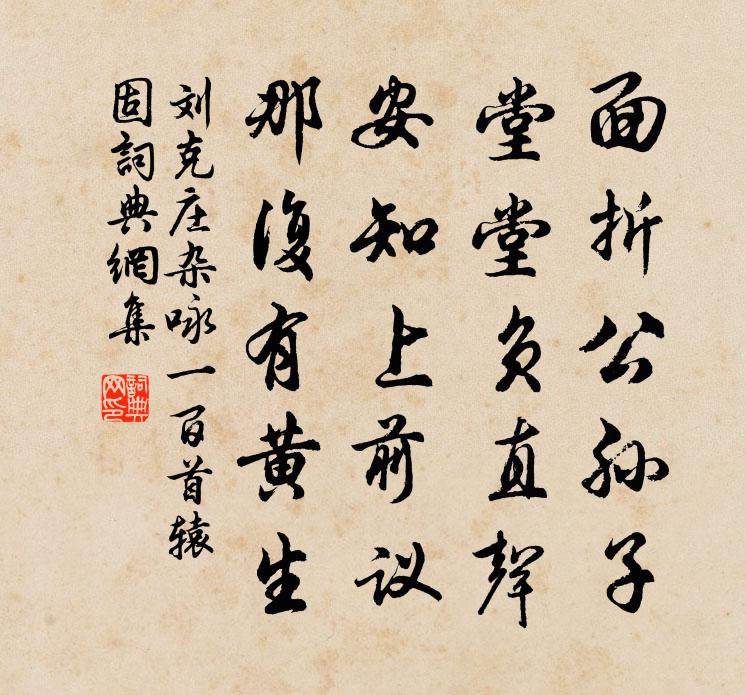 面折公孙子
堂堂负直聲
安知上前议
那復有黄生
刘克庄杂咏一百首辕
固詞典網集
詞典网印